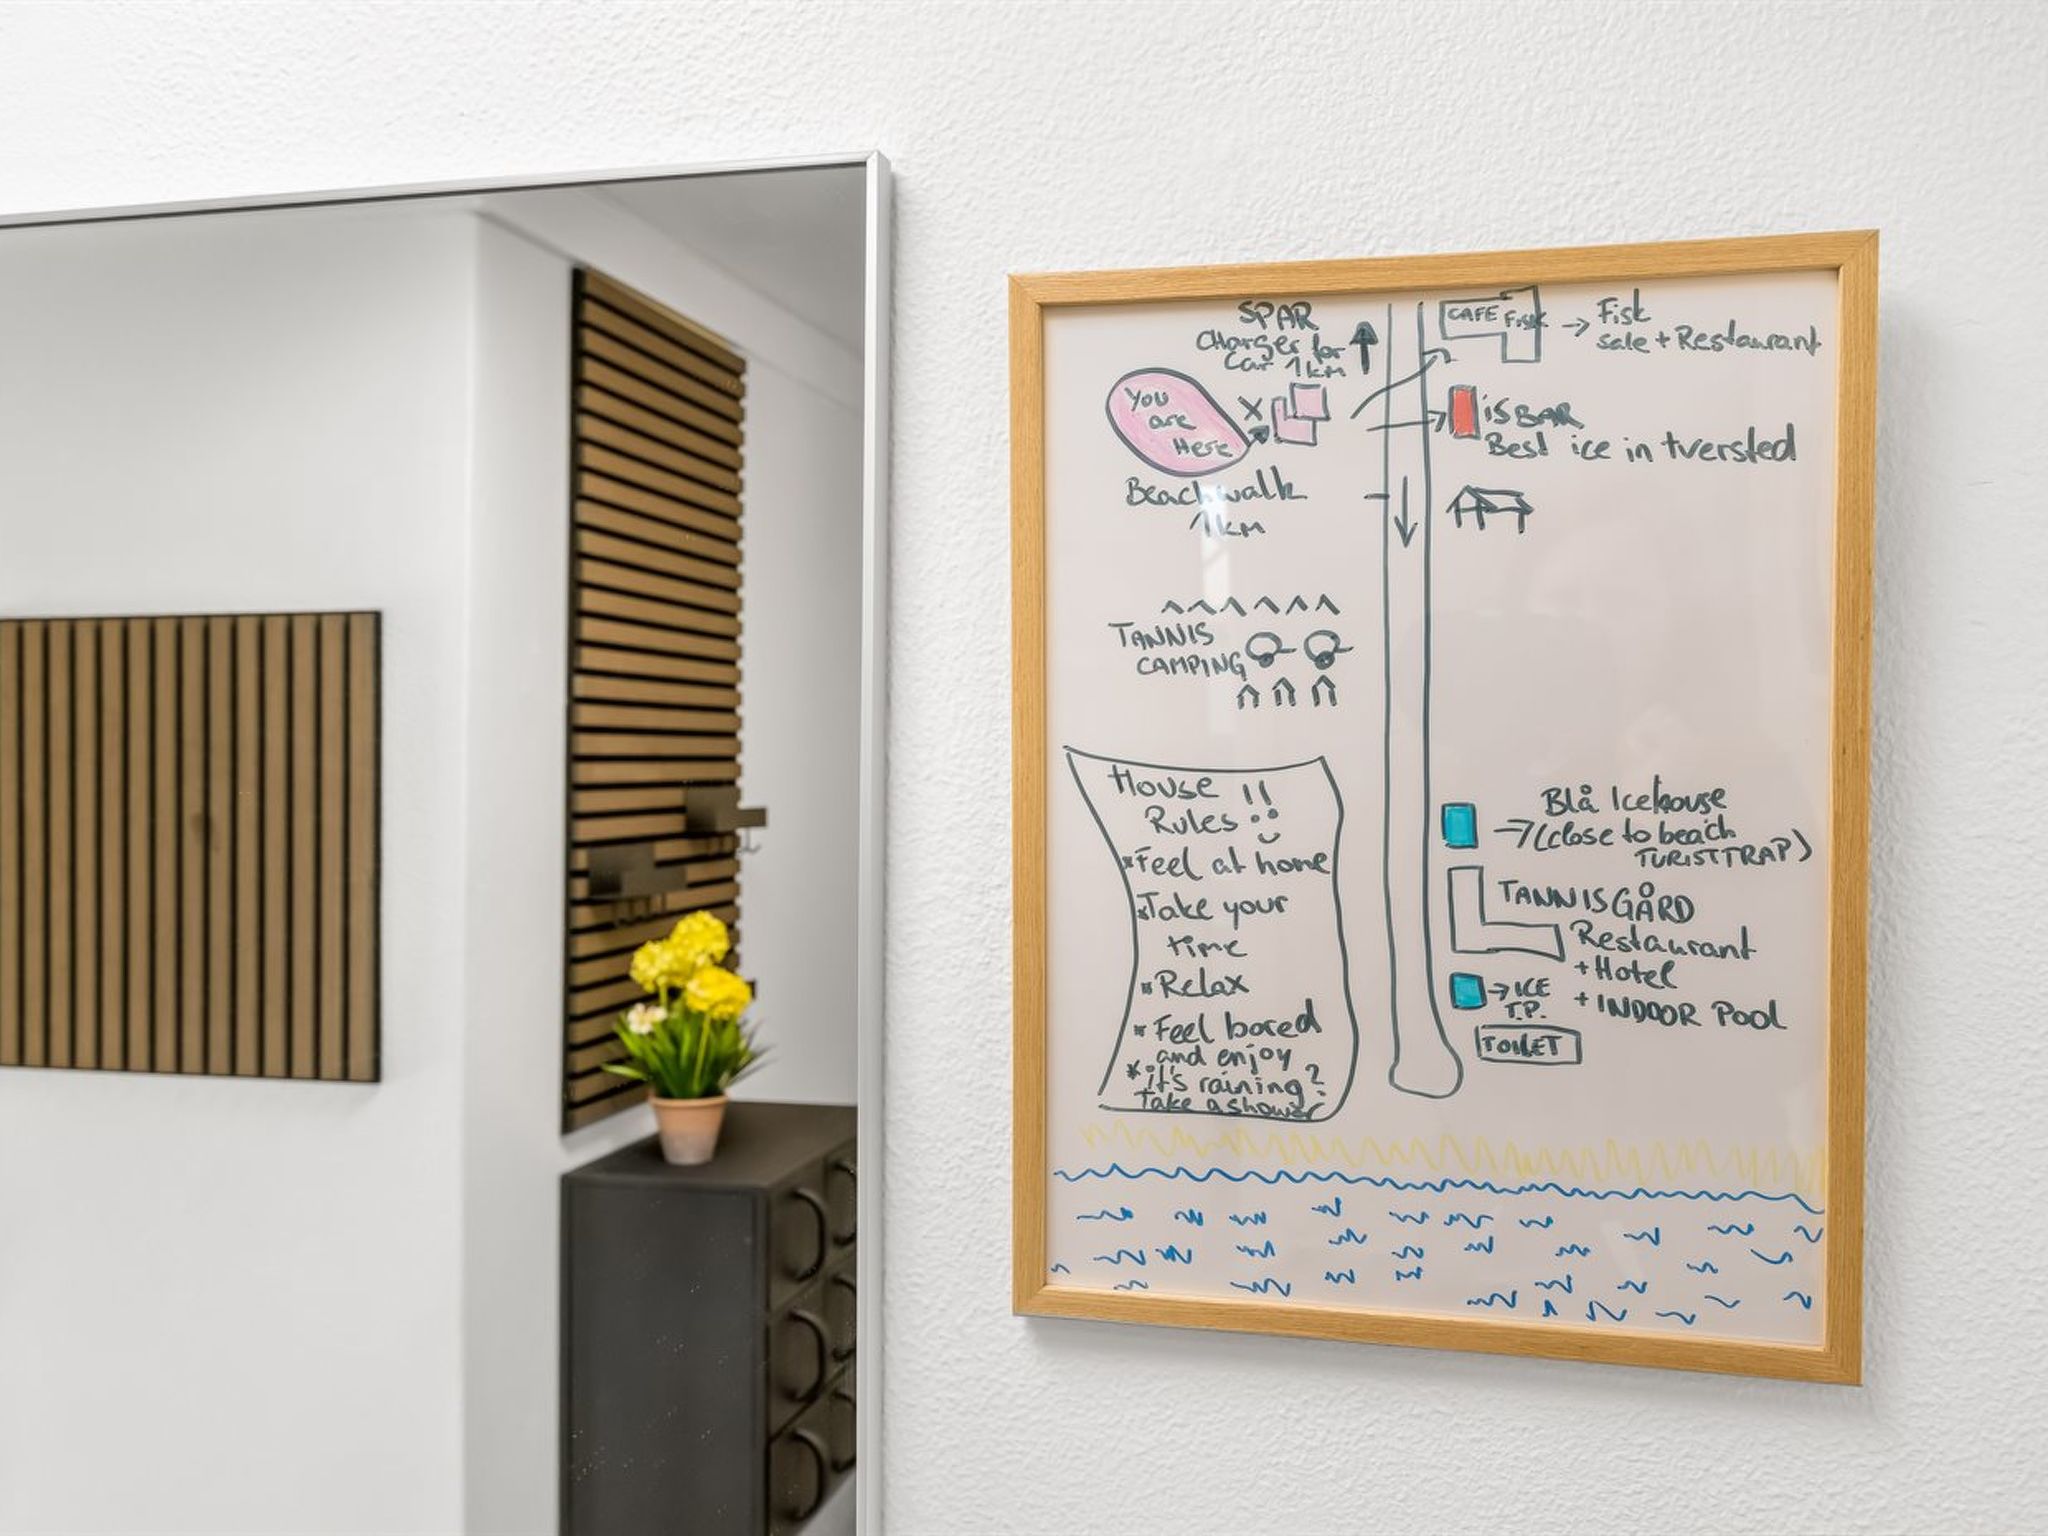 SPAR
Charger for
Car 1km
CAFE FISK → Fisk
sale + Restaurant
You
are
Here
X
iSBAR
Best ice in tversted
Beachwalk
1km
TANNIS
CAMPING
House !!
Rules
*Feel at home
*Take your
time
*Relax
*Feel bored
and enjoy
*it's raining?
Take a shower
Blå Icehouse
→ (close to beach
TURISTTRAP)
TANNISGÅRD
Restaurant
+ Hotel
+ INDOOR POOL
→ ICE
T.P.
TOILET